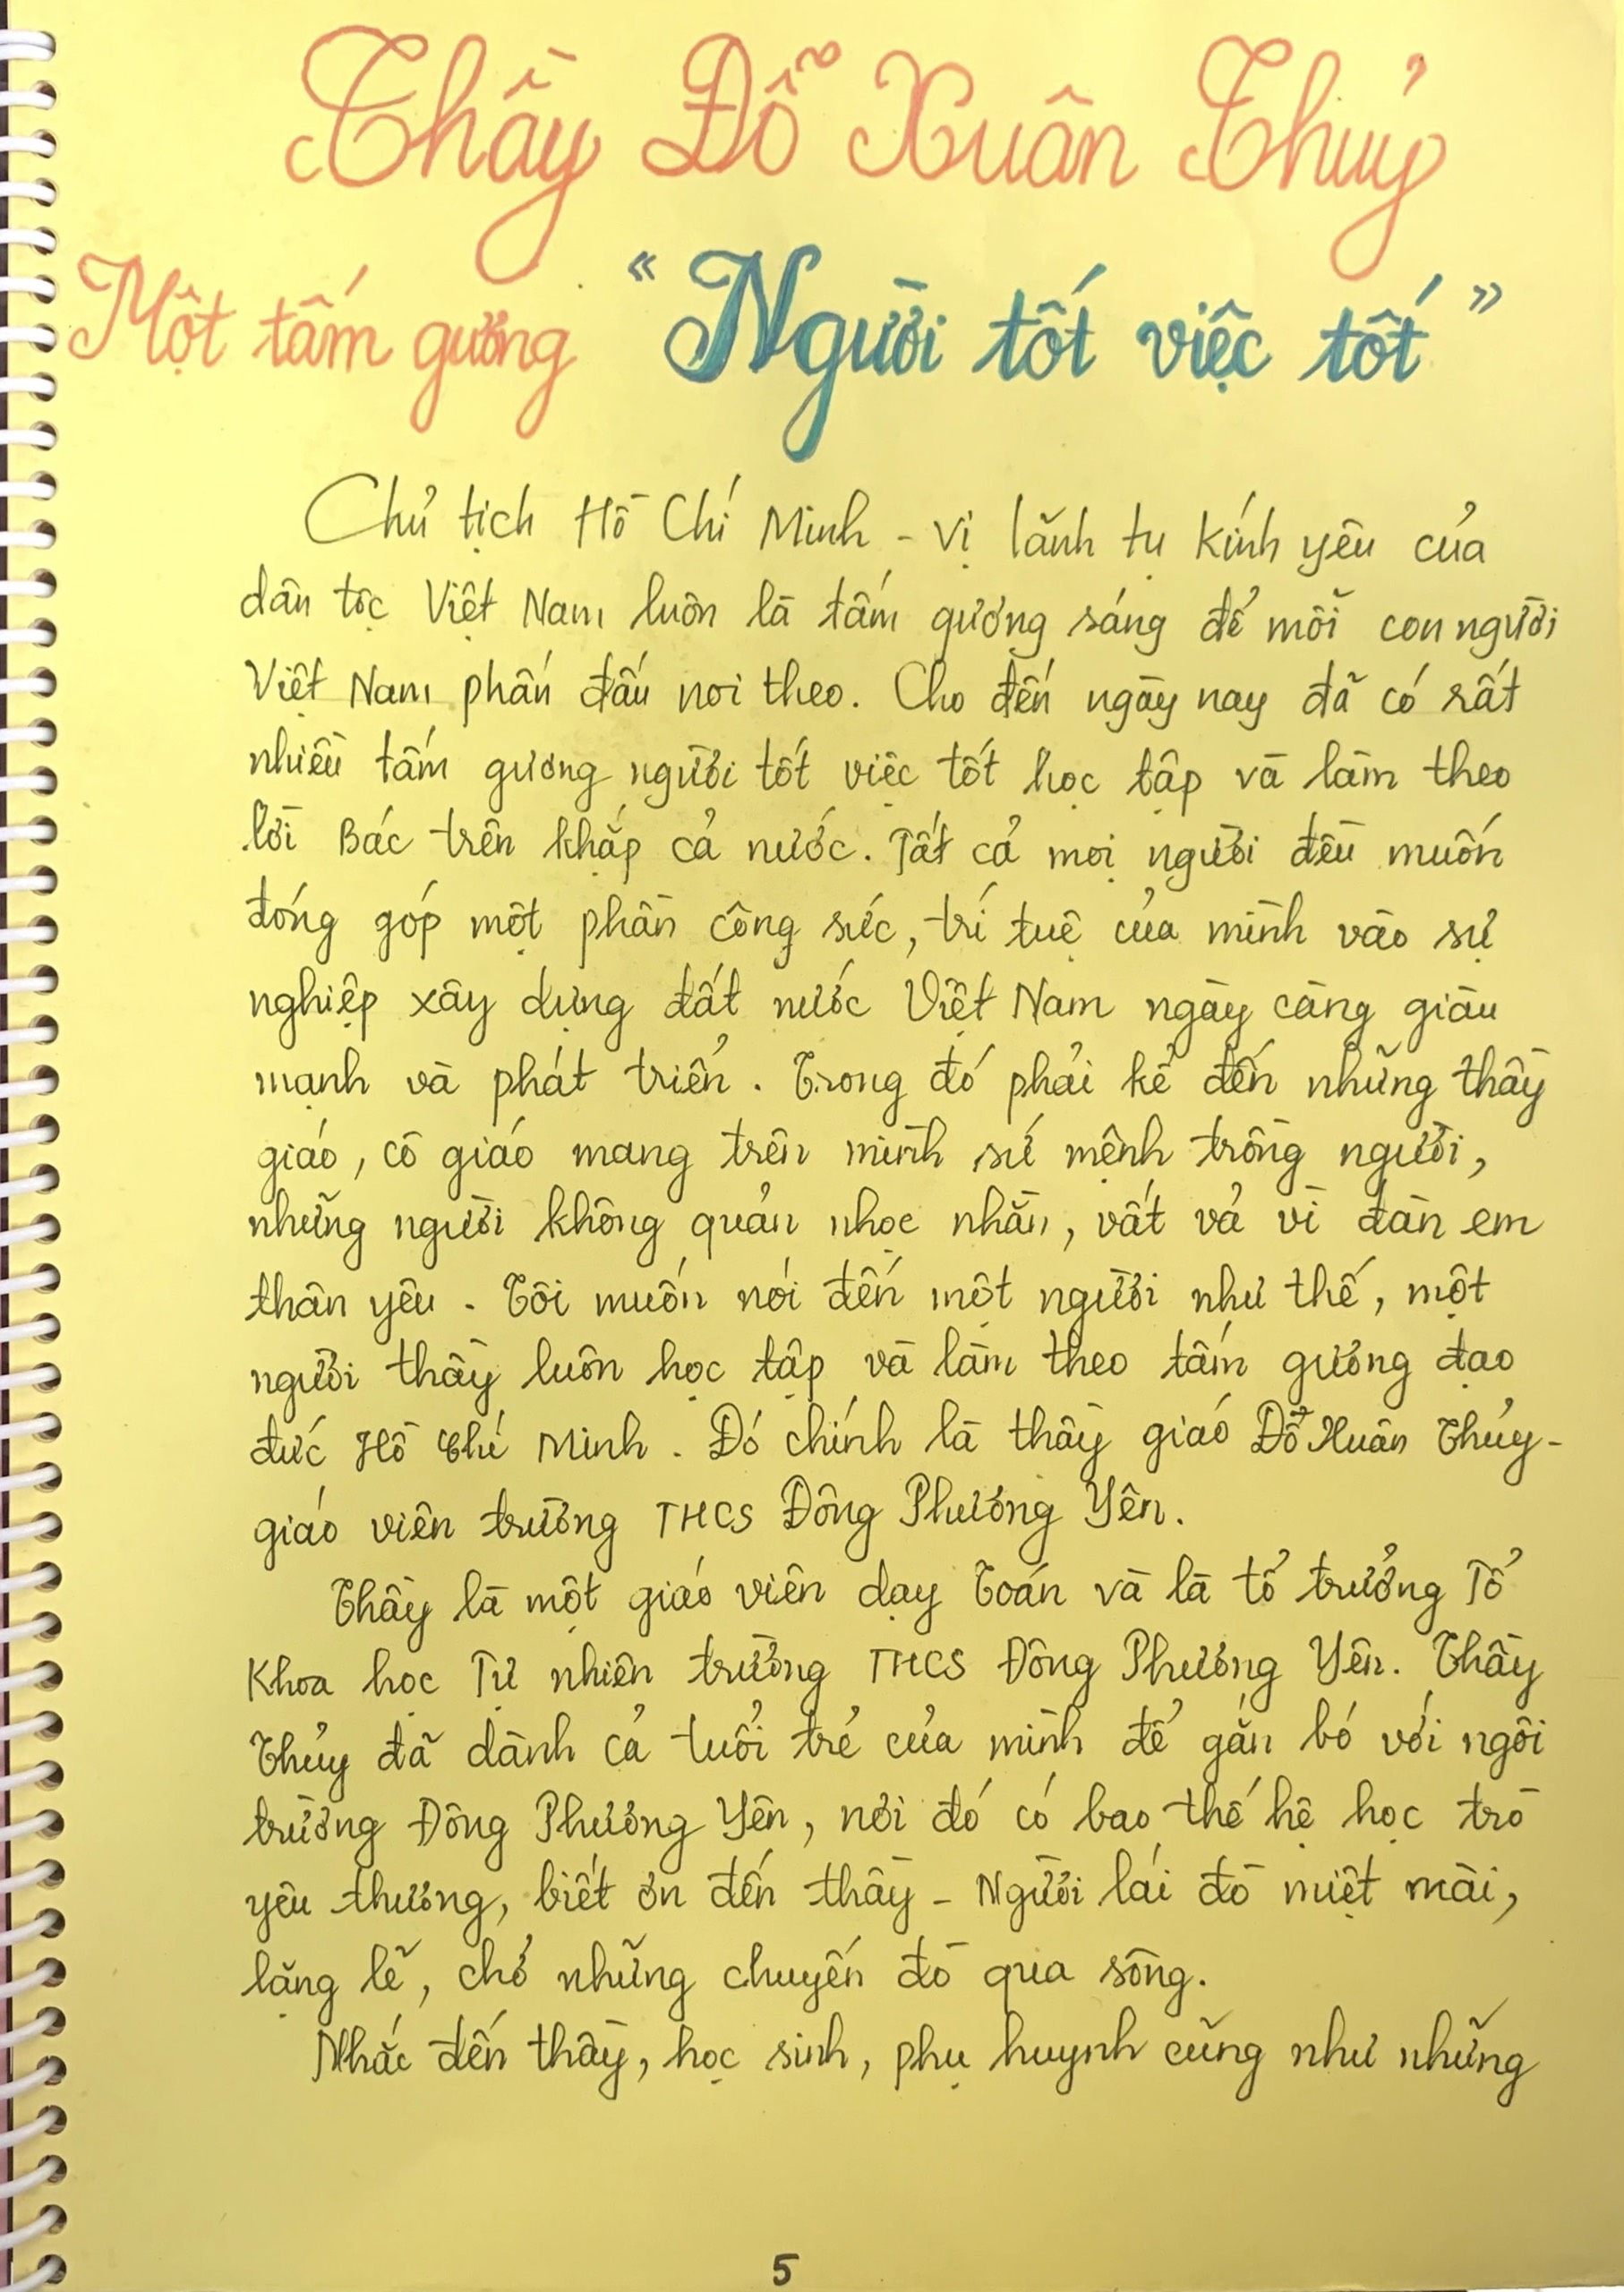 Thầy Đỗ Xuân Thủy
Một tấm gương “Người tốt việc tốt”
Chủ tịch Hồ Chí Minh - Vị lãnh tụ kính yêu của
dân tộc Việt Nam luôn là tấm gương sáng để mỗi con người
Việt Nam phấn đấu noi theo. Cho đến ngày nay đã có rất
nhiều tấm gương người tốt việc tốt học tập và làm theo
lời Bác trên khắp cả nước. Tất cả mọi người đều muốn
đóng góp một phần công sức, trí tuệ của mình vào sự
nghiệp xây dựng đất nước Việt Nam ngày càng giàu
mạnh và phát triển. Trong đó phải kể đến những thầy
giáo, cô giáo mang trên mình sứ mệnh trồng người,
những người không quản nhọc nhằn, vất vả vì đàn em
thân yêu. Tôi muốn nói đến một người như thế, một
người thầy luôn học tập và làm theo tấm gương đạo
đức Hồ Chí Minh. Đó chính là thầy giáo Đỗ Xuân Thủy-
giáo viên trường THCS Đông Phương Yên.
Thầy là một giáo viên dạy Toán và là tổ trưởng Tổ
Khoa học Tự nhiên trường THCS Đông Phương Yên. Thầy
Thủy đã dành cả tuổi trẻ của mình để gắn bó với ngôi
trường Đông Phương Yên, nơi đó có bao thế hệ học trò
yêu thương, biết ơn đến thầy - Người lái đò miệt mài,
lặng lẽ, chở những chuyến đò qua sông.
Nhắc đến thầy, học sinh, phụ huynh cũng như những
5